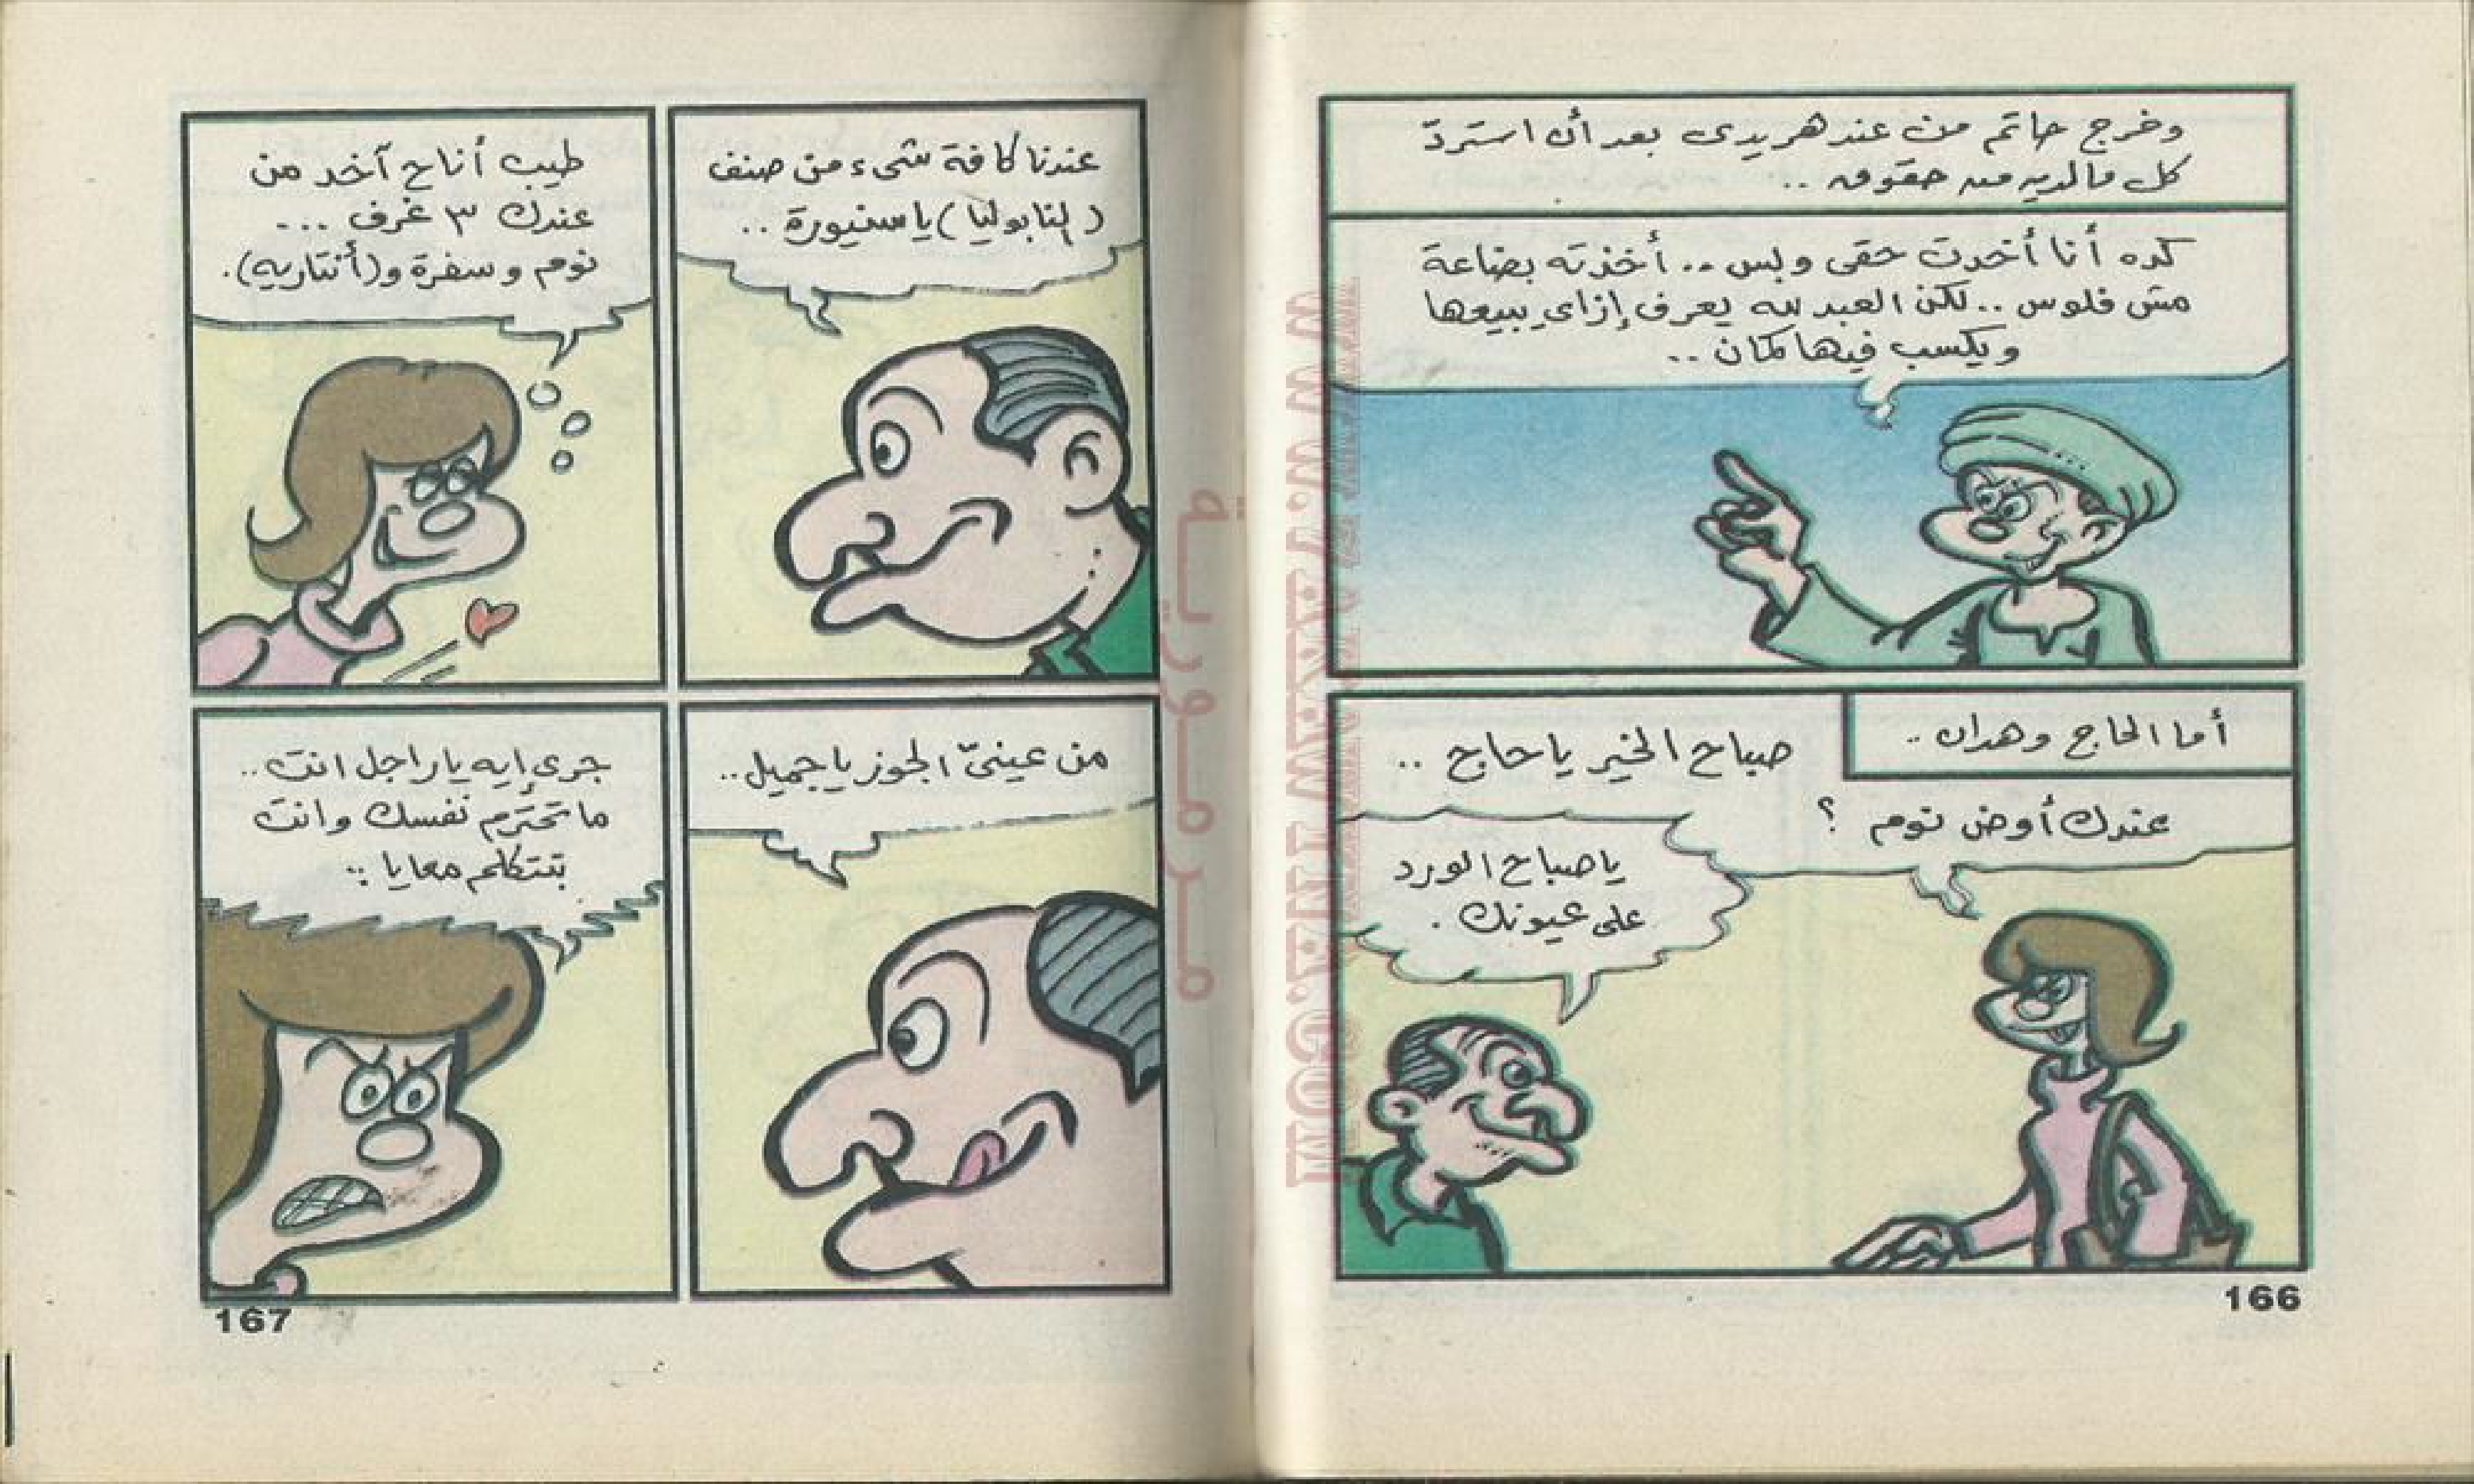 وخرج حاتم من عند هريدى بعد أن استردّ
كل ما لديه من حقوق ..
كده أنا أخدت حقى وبس .. أخذته بضاعة
مش فلوس .. لكن العبد لله يعرف إزاى يبيعها
ويكسب فيها كمان ..
أما الحاج وهدان ..
صباح الخير ياحاج ..
عندك أوض نوم ؟
ياصباح الورد
على عيونك .
166
عندنا كافة شىء من صنف
(النابوليا) ياسنيورة ..
طيب أناح آخد من
عندك ٣ غرف ...
نوم وسفرة و(أنتاريه).
من عينىّ الجوز ياجميل ..
جرى إيه ياراجل انت ..
ماتحترم نفسك وانت
بتتكلم معايا ..
167
مرمورية